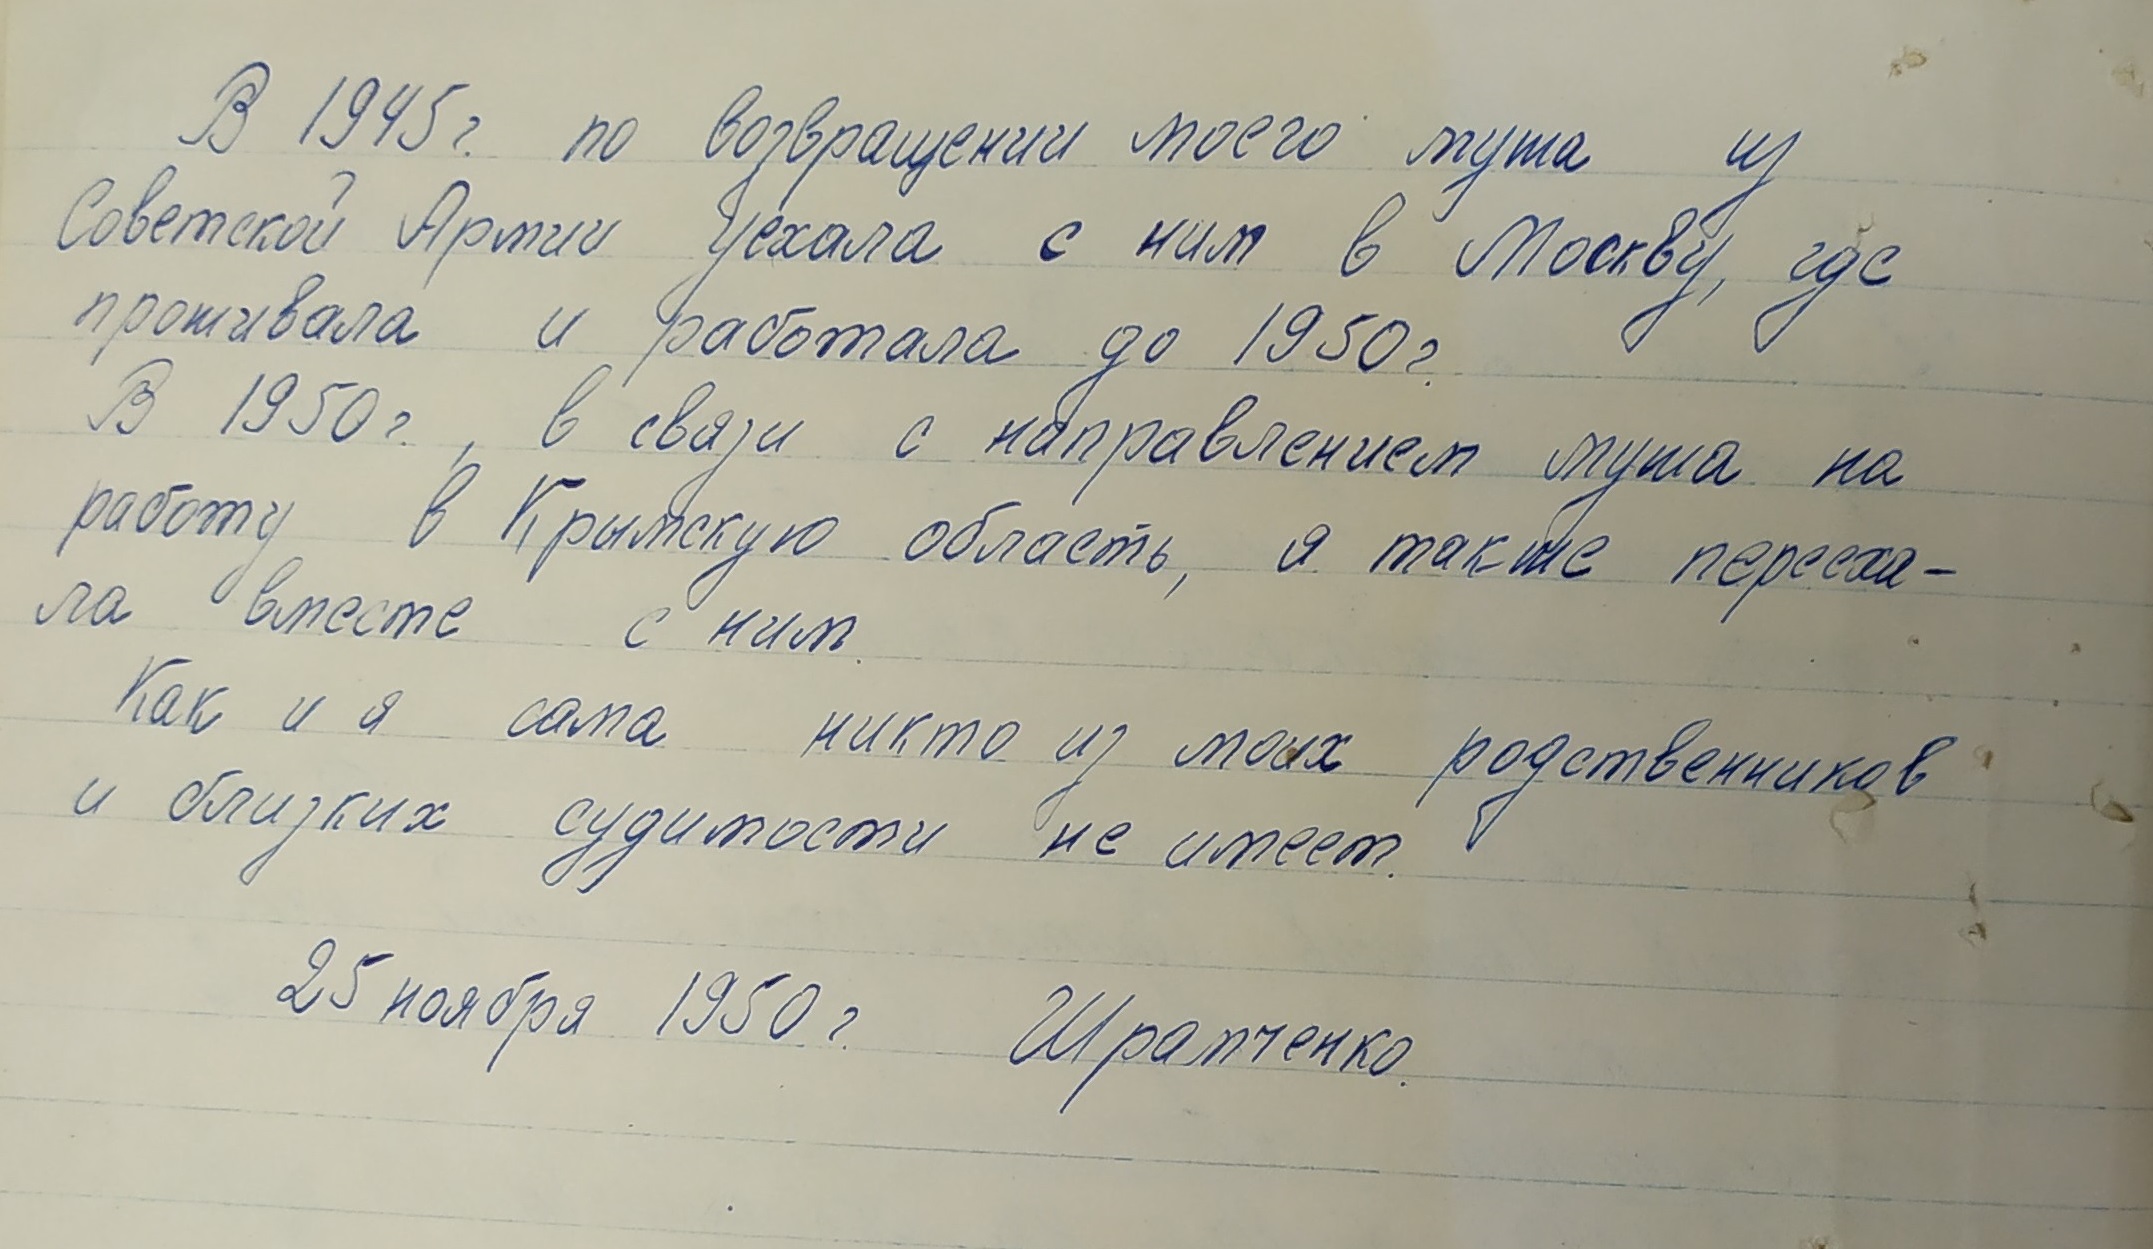 В 1945г. по возвращении моего мужа из
Советской Армии уехала с ним в Москву, где
проживала и работала до 1950г.
В 1950г., в связи с направлением мужа на
работу в Крымскую область, я также перееха-
ла вместе с ним.
Как и я сама никто из моих родственников
и близких судимости не имеет.
25 ноября 1950г. Шрамченко.